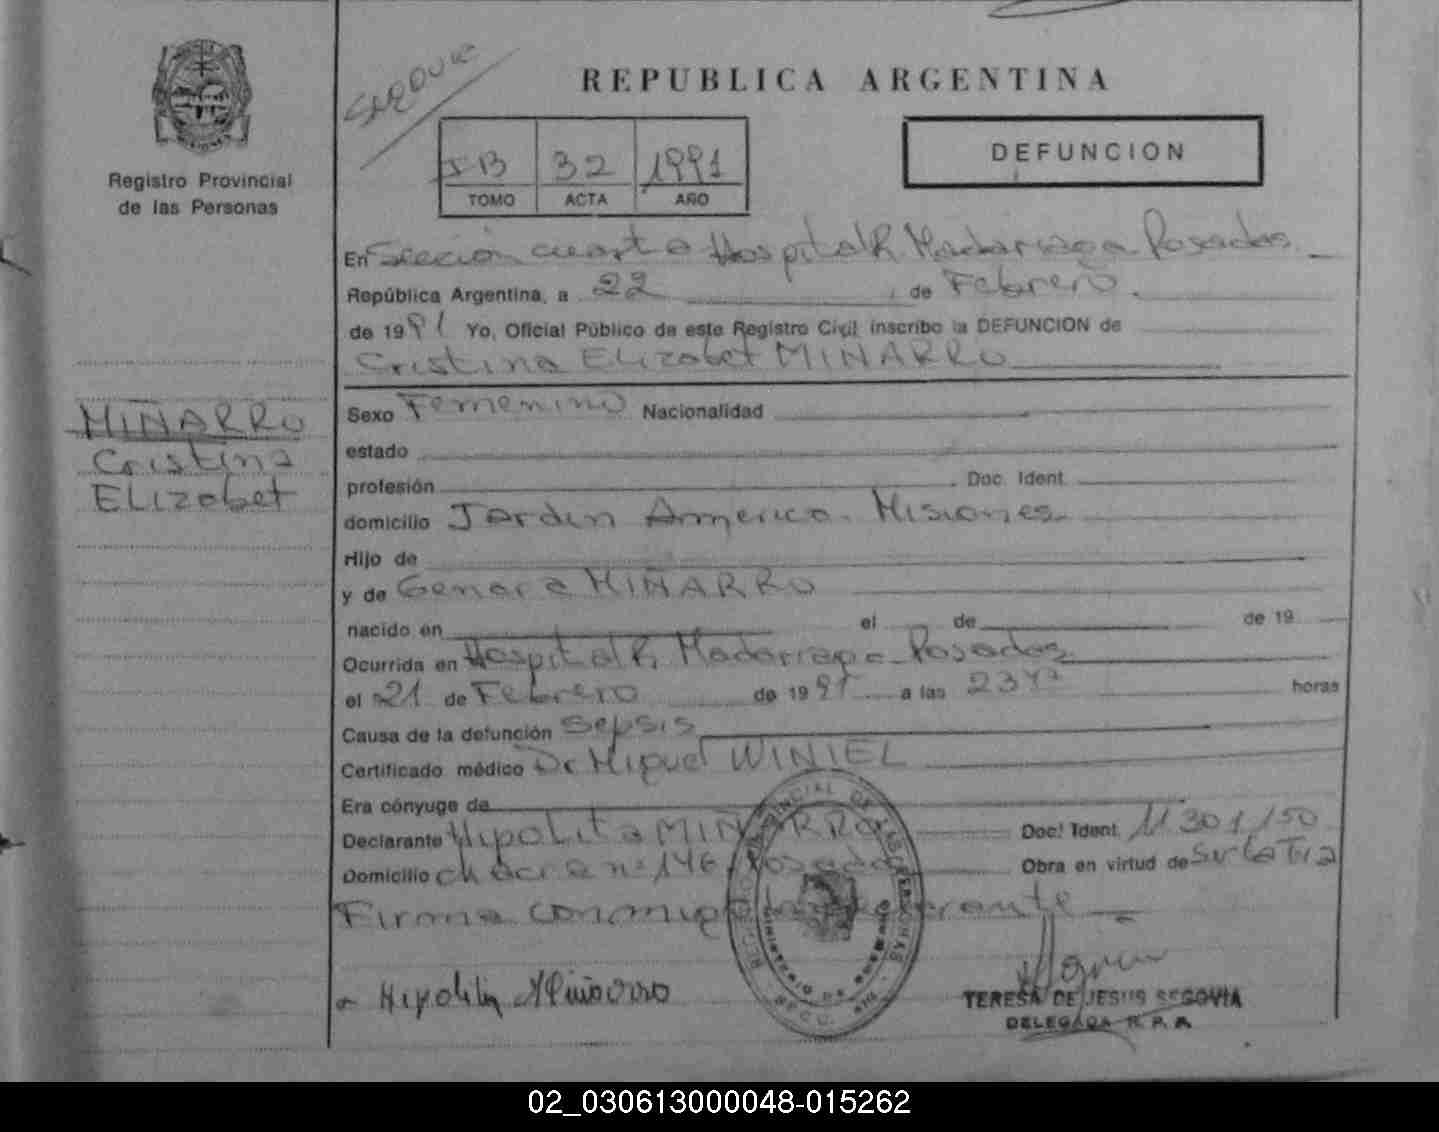 SEGOVIA
REPUBLICA ARGENTINA
DEFUNCION
MISIONES
Registro Provincial
de las Personas
32 1991
TOMO ACTA AÑO
En Sección cuarta Hospital R. Madariaga Posadas.
República Argentina, a 22 de Febrero
de 1991 Yo, Oficial Público de este Registro Civil inscribo la DEFUNCION de
Cristina Elizabet MIÑARRO
MIÑARRO
Cristina
Elizabet
Sexo Femenino Nacionalidad
estado
profesión Doc. Ident.
domicilio Jardin America. Misiones
Hijo de
y de Genara MIÑARRO
nacido en el de de 19
Ocurrida en Hospital R. Madariaga Posadas
el 21 de Febrero de 1991 a las horas
Causa de la defunción Sepsis
Certificado médico Dr Miguel WINIEL
Era cónyuge de
Declarante Hipolita MIÑARRO Doc. Ident. 11 301 150
Domicilio chacra nº 146 Posadas Obra en virtud de
Firma conmigo
Hipolita Miñarro
TERESA DE JESUS SEGOVIA
DELEGADA R. P. P.
02_030613000048-015262